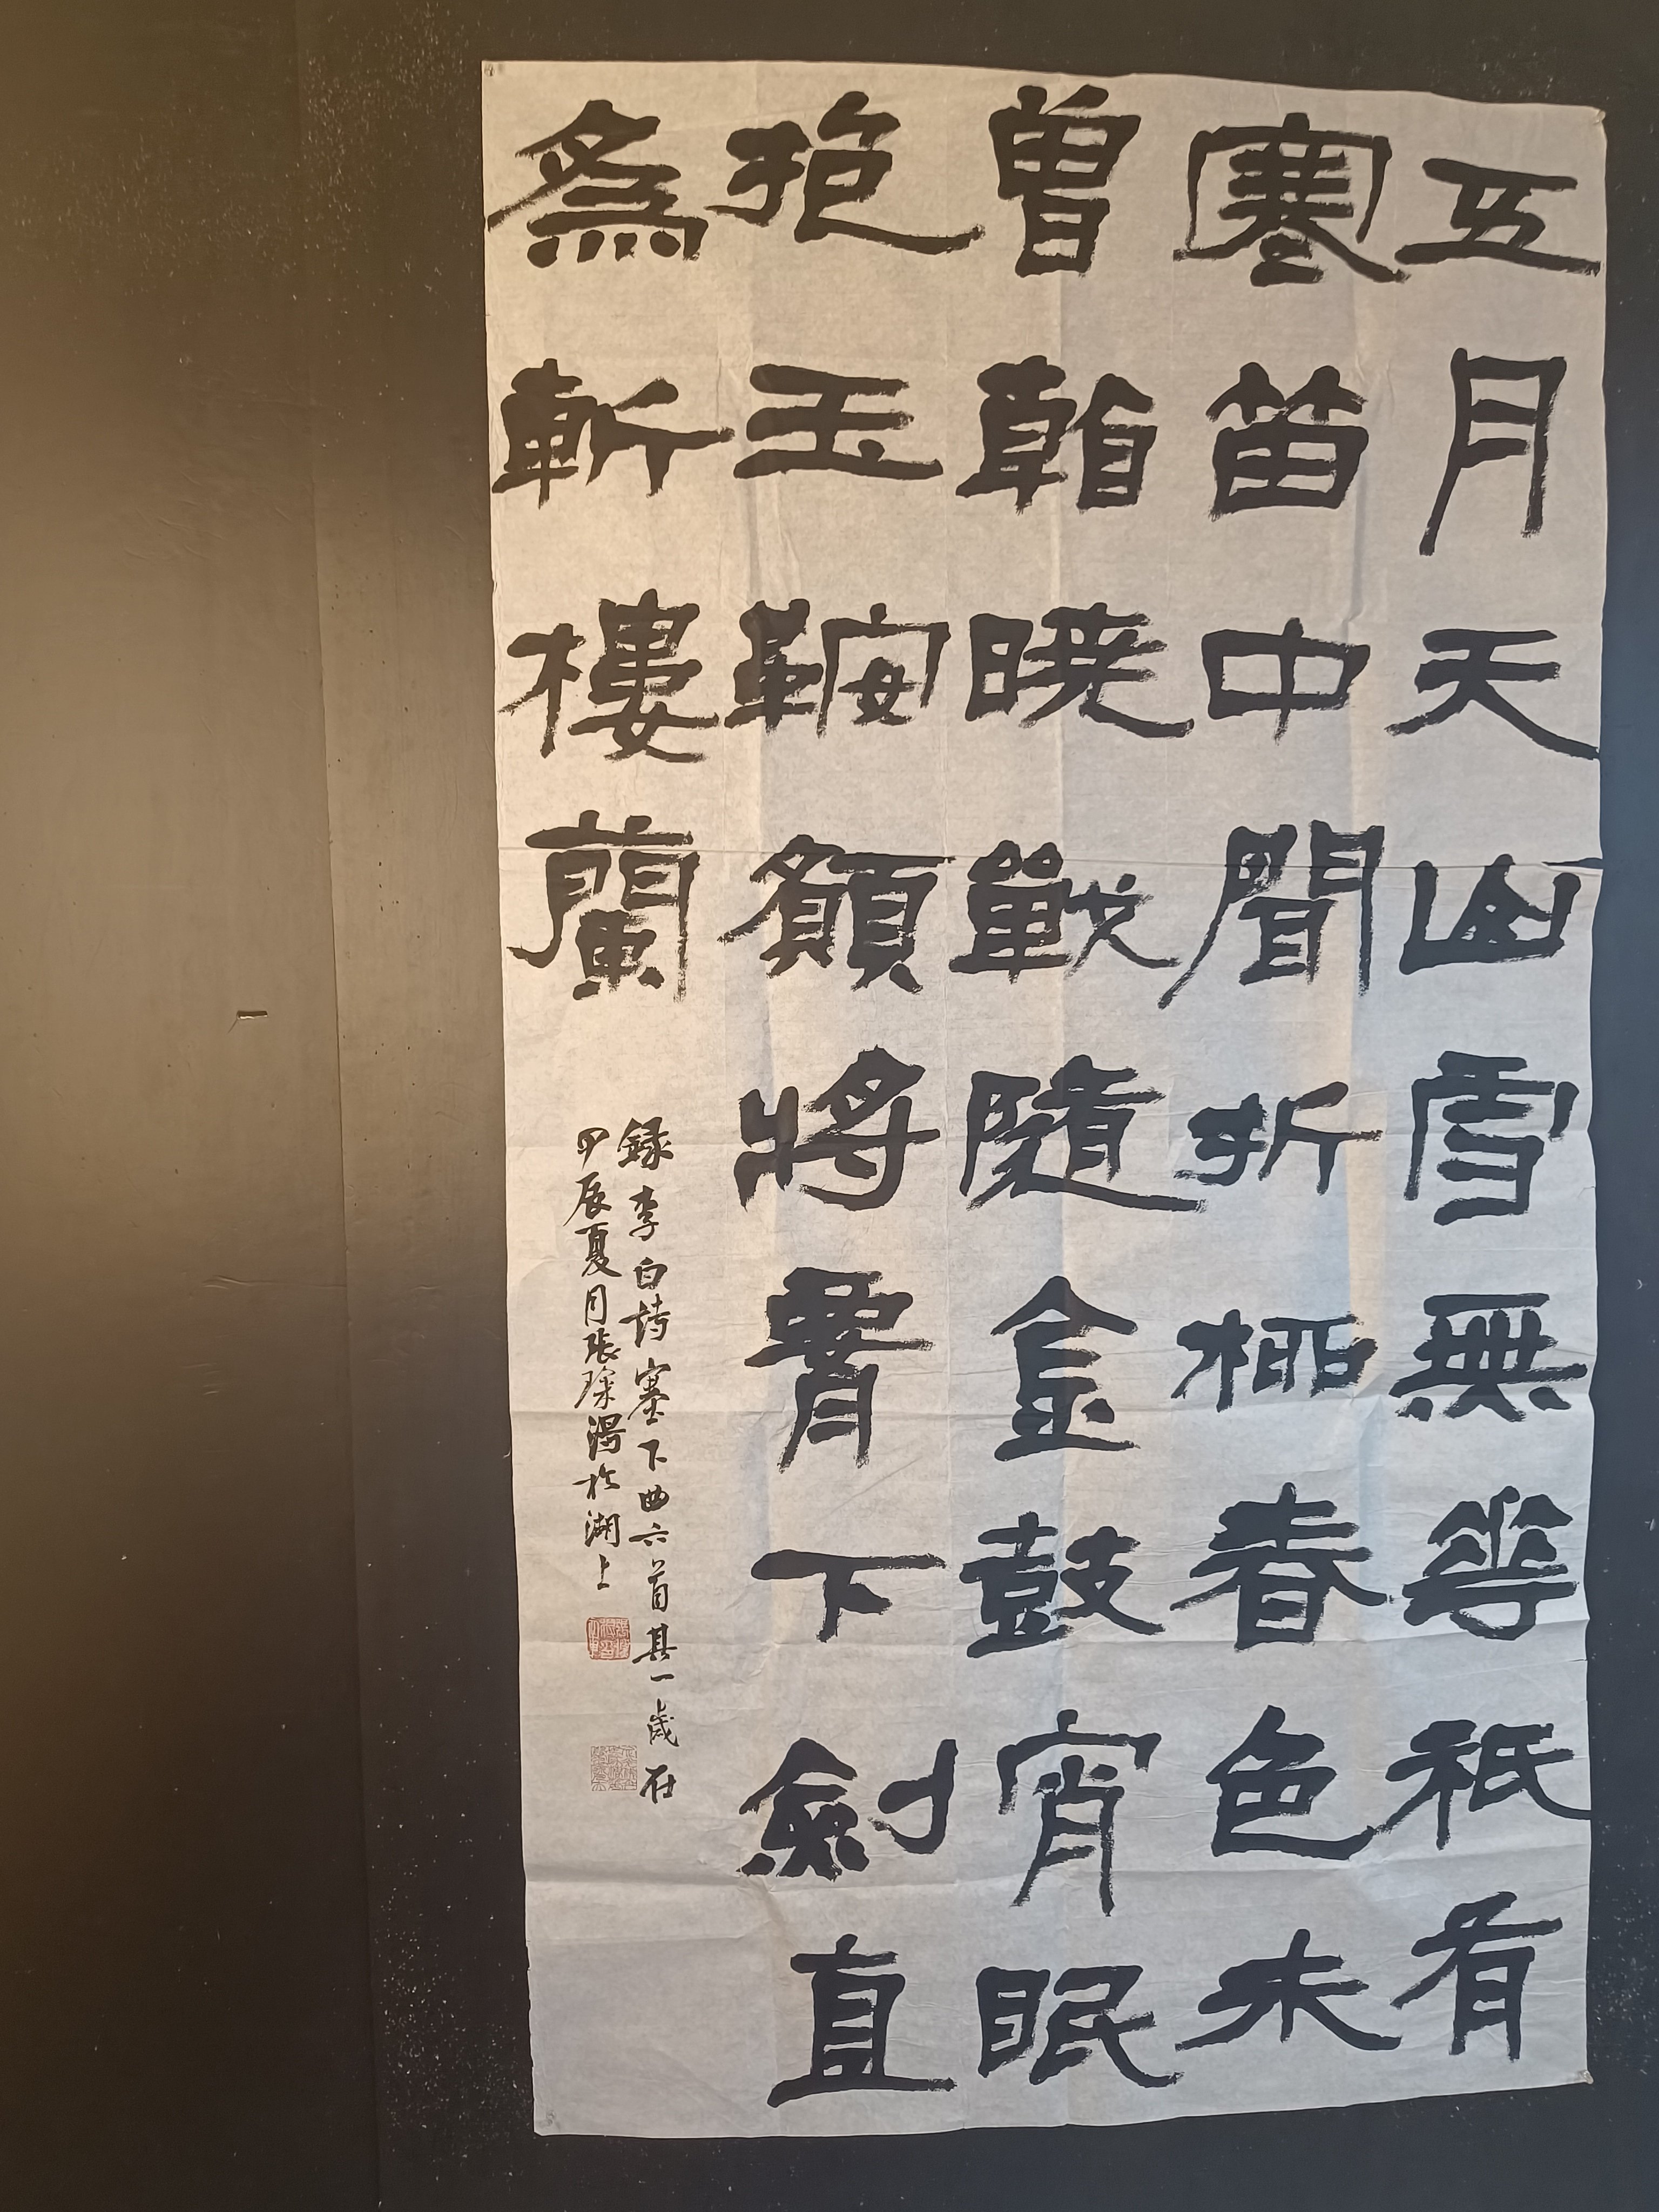 五月天山雪無華祇有
寒笛中聞折柳春色未
曾看曉戰隨金鼓宵眠
抱玉鞍願將腰下劍直
爲斬樓蘭
録李白詩塞下曲六首其一歲在
甲辰夏月張琛於湖上